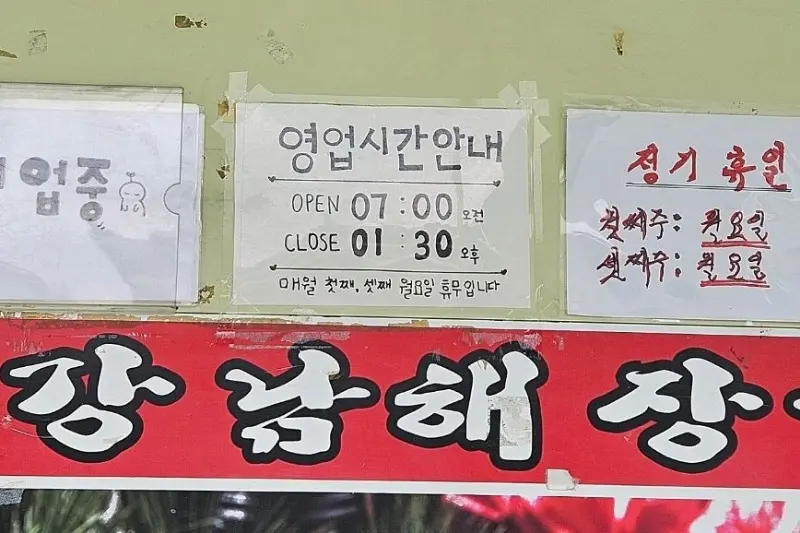 업중
영업시간안내
OPEN 07:00 오전
CLOSE 01:30 오후
매월 첫째, 셋째 월요일 휴무입니다
정기 휴일
첫째주: 월요일
셋째주: 월요일
강남해장